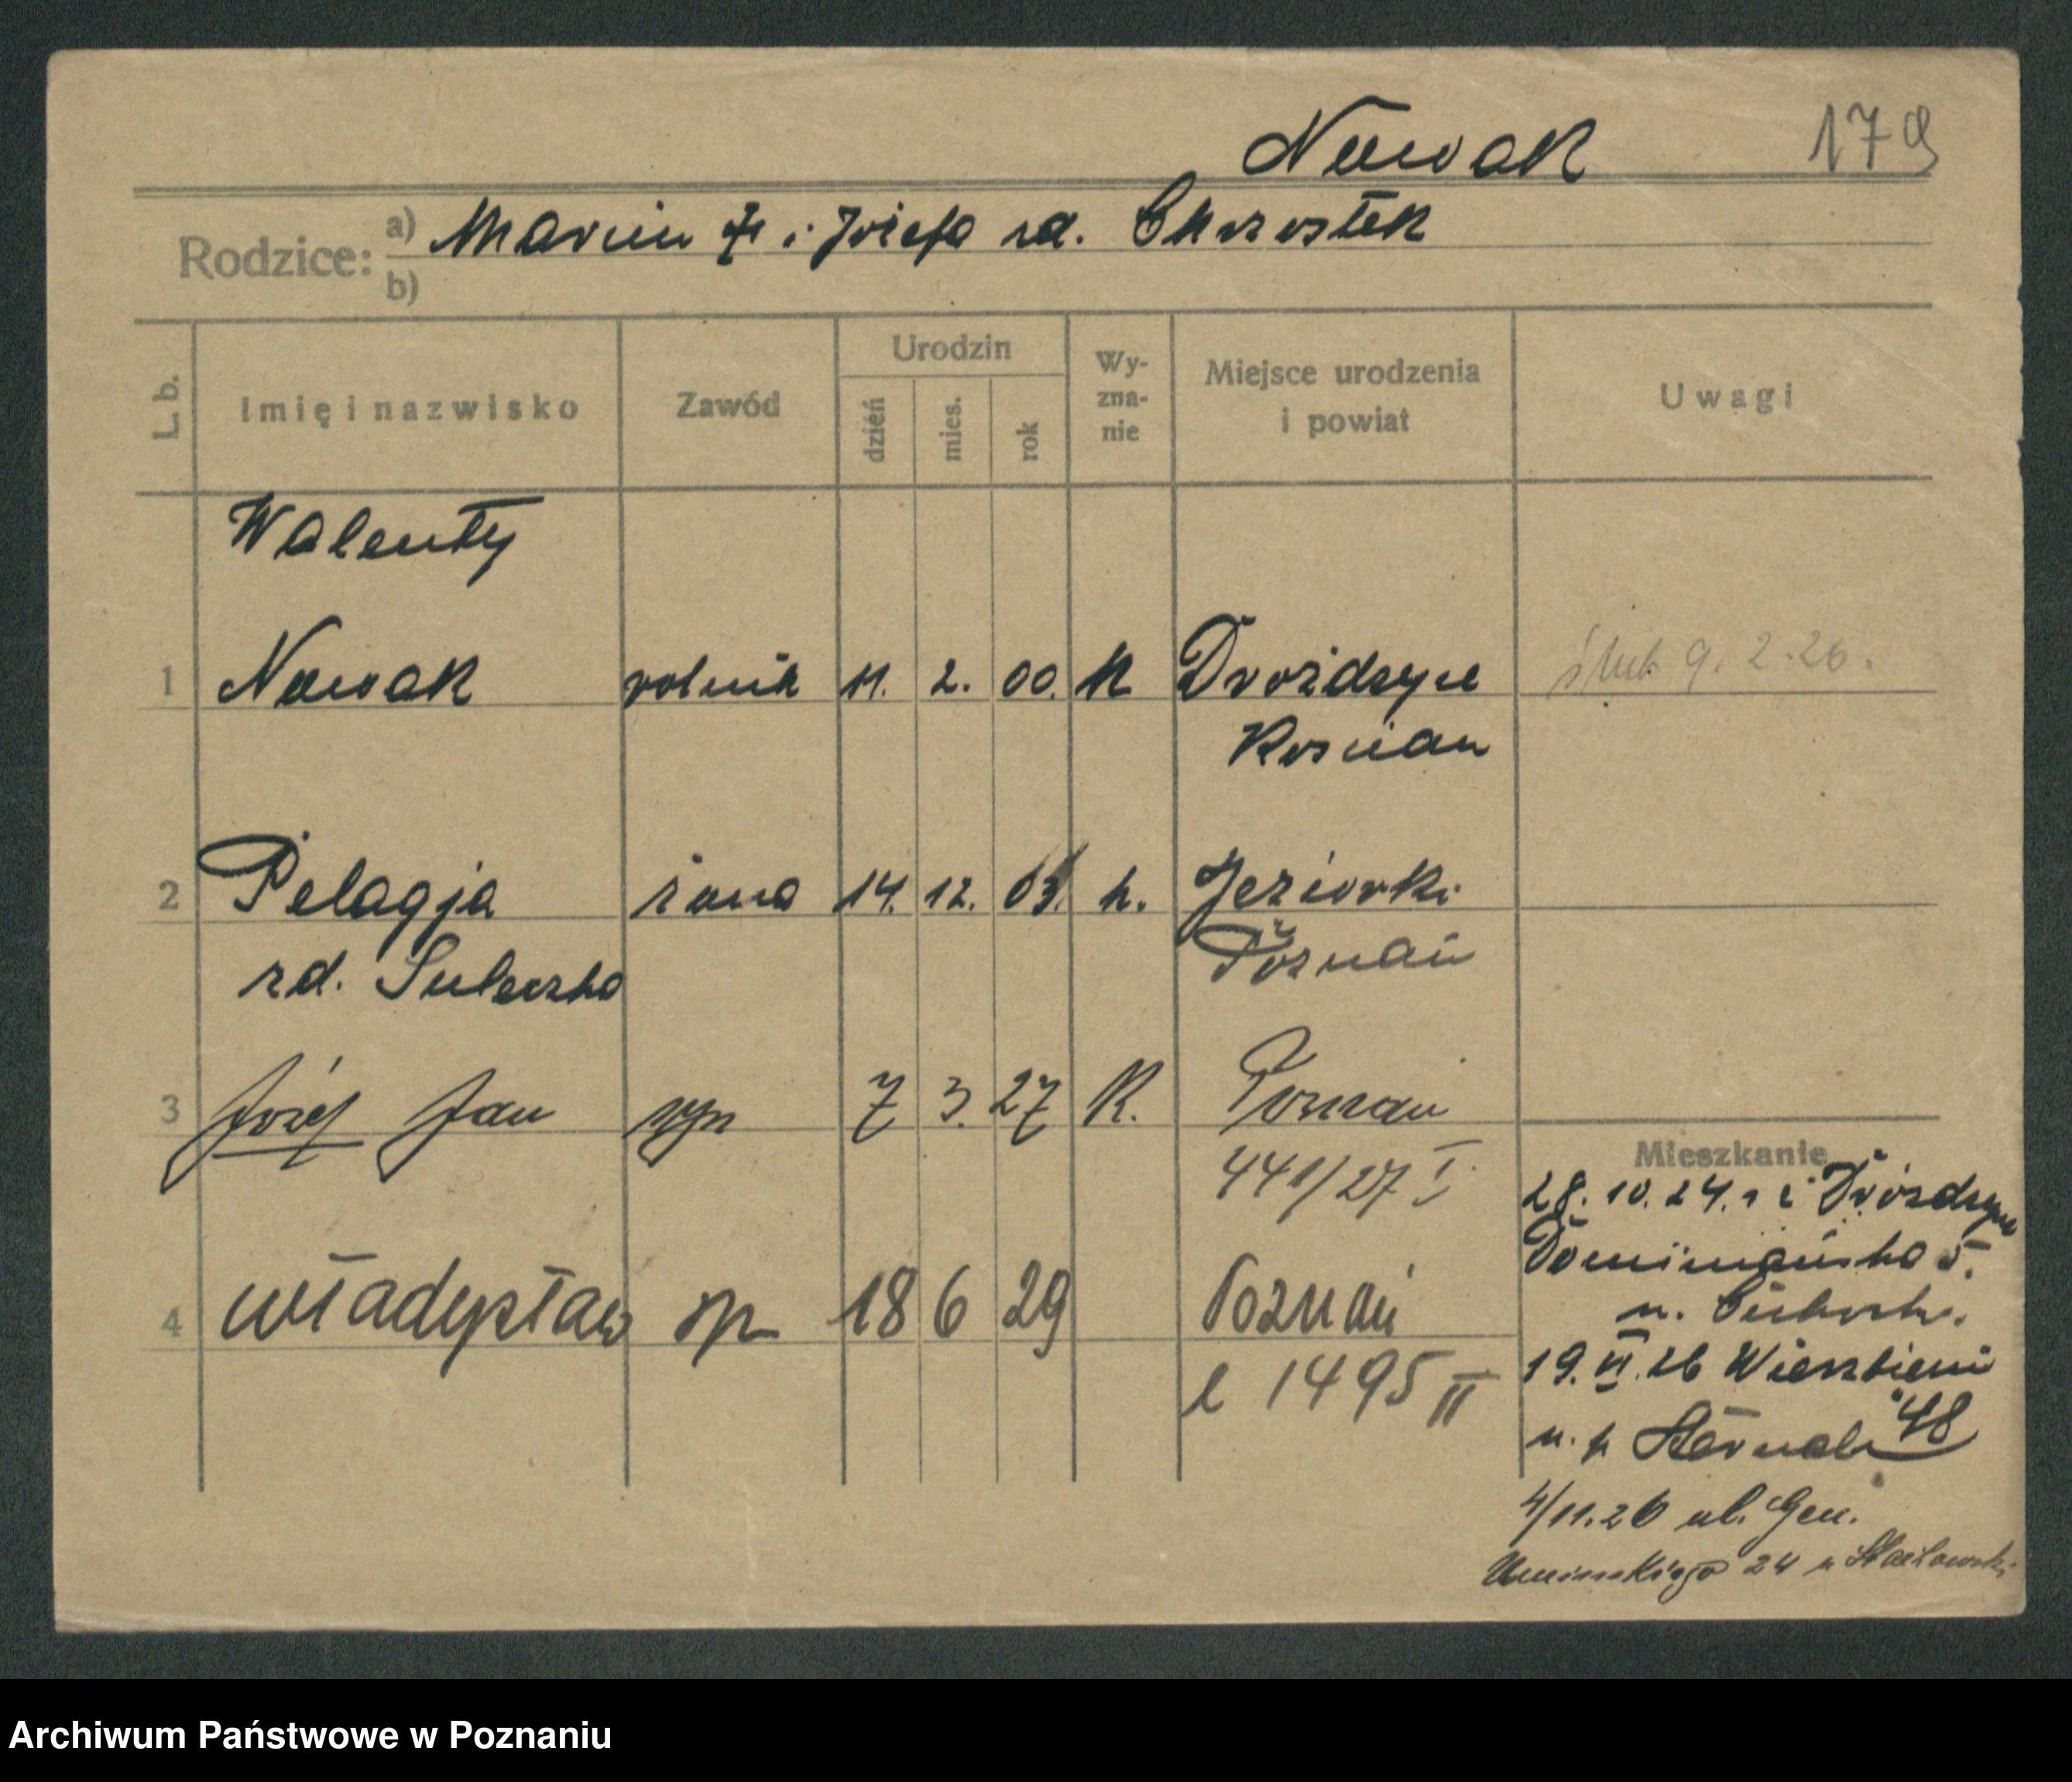 Nowak 179
Rodzice: a) Marcin † i Józefa zd. Chrostek
b)
L. b. Imię i nazwisko Zawód Urodzin dzień mies. rok Wyznanie Miejsce urodzenia i powiat Uwagi
Walenty
1 Nowak rolnik 11. 2. 00. K Drożdzyce ślub 9. 2. 26.
2 Pelagja żona 14. 12. 03. k. Jeziorki
Poznań
zd. Suleczka
3 Józef Jan syn 7 3. 27 K. Poznań
441/27 I.
Mieszkanie
28. 10. 24. z Drożdzyce
4 Władysław syn 18 6 29 Poznań
l 1495 II
Dominikańska 5.
19. VI. 26 Wierzbięcice 48
4/11. 26 ul. Gen.
Umińskiego 24 u
Archiwum Państwowe w Poznaniu